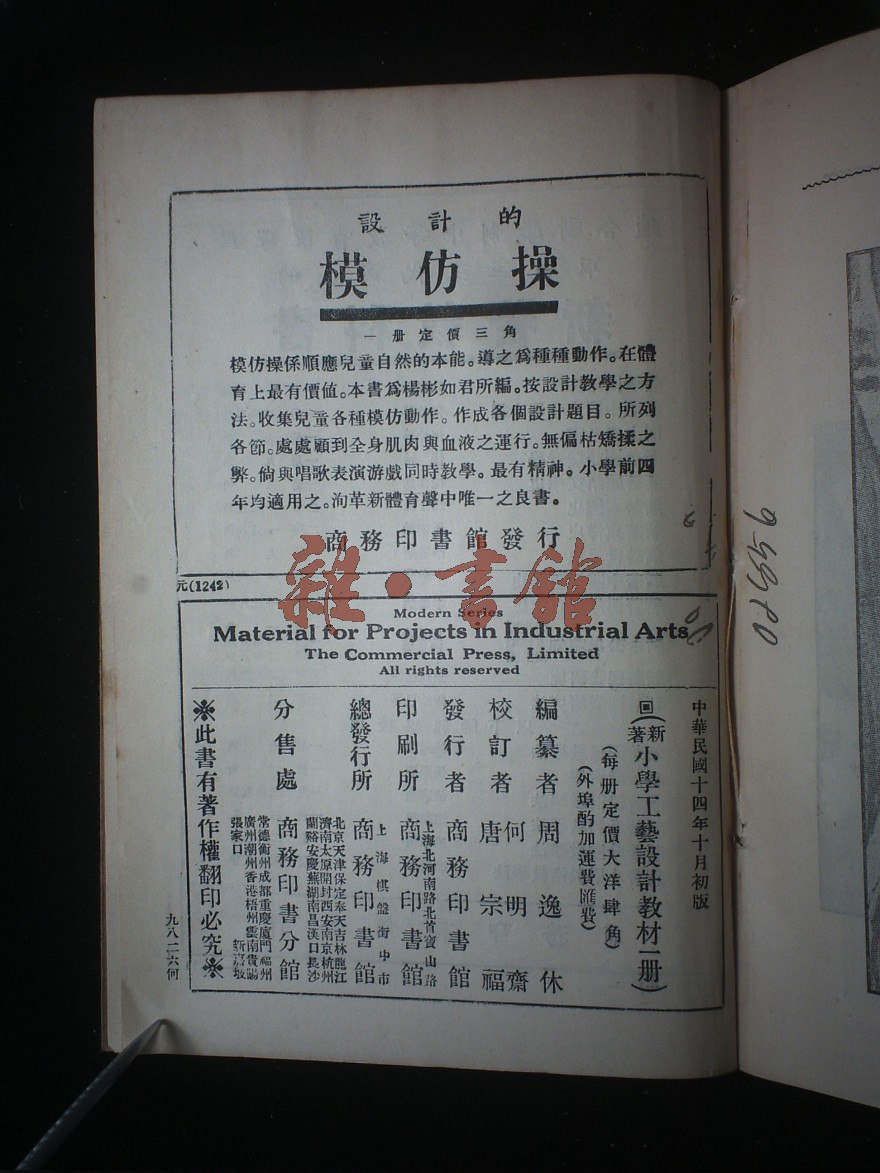 設計的
模仿操
一册定價三角
模仿操係順應兒童自然的本能。導之爲種種動作。在體
育上最有價値。本書爲楊彬如君所編。按設計敎學之方
法。收集兒童各種模仿動作。作成各個設計題目。所列
各節。處處顧到全身肌肉與血液之運行。無偏枯矯揉之
弊。倘與唱歌表演游戲同時敎學。最有精神。小學前四
年均適用之。洵革新體育聲中唯一之良書。
商務印書館發行
元(1242)
雜·書館
Modern Series
Material for Projects in Industrial Arts
The Commercial Press, Limited
All rights reserved
中華民國十四年十月初版
(新著)小學工藝設計敎材一册)
(每册定價大洋肆角)
(外埠酌加運費匯費)
編纂者 周逸休
校訂者 何明齋 唐宗福
發行者 商務印書館
印刷所 上海北河南路北首寶山路 商務印書館
總發行所 上海棋盤街中市 商務印書館
分售處 商務印書分館
北京天津保定奉天吉林龍江
濟南太原開封西安南京杭州
蘭谿安慶蕪湖南昌漢口長沙
常德衡州成都重慶廈門福州
廣州潮州香港梧州雲南貴陽
張家口 新嘉坡
※此書有著作權翻印必究※
九八二六何